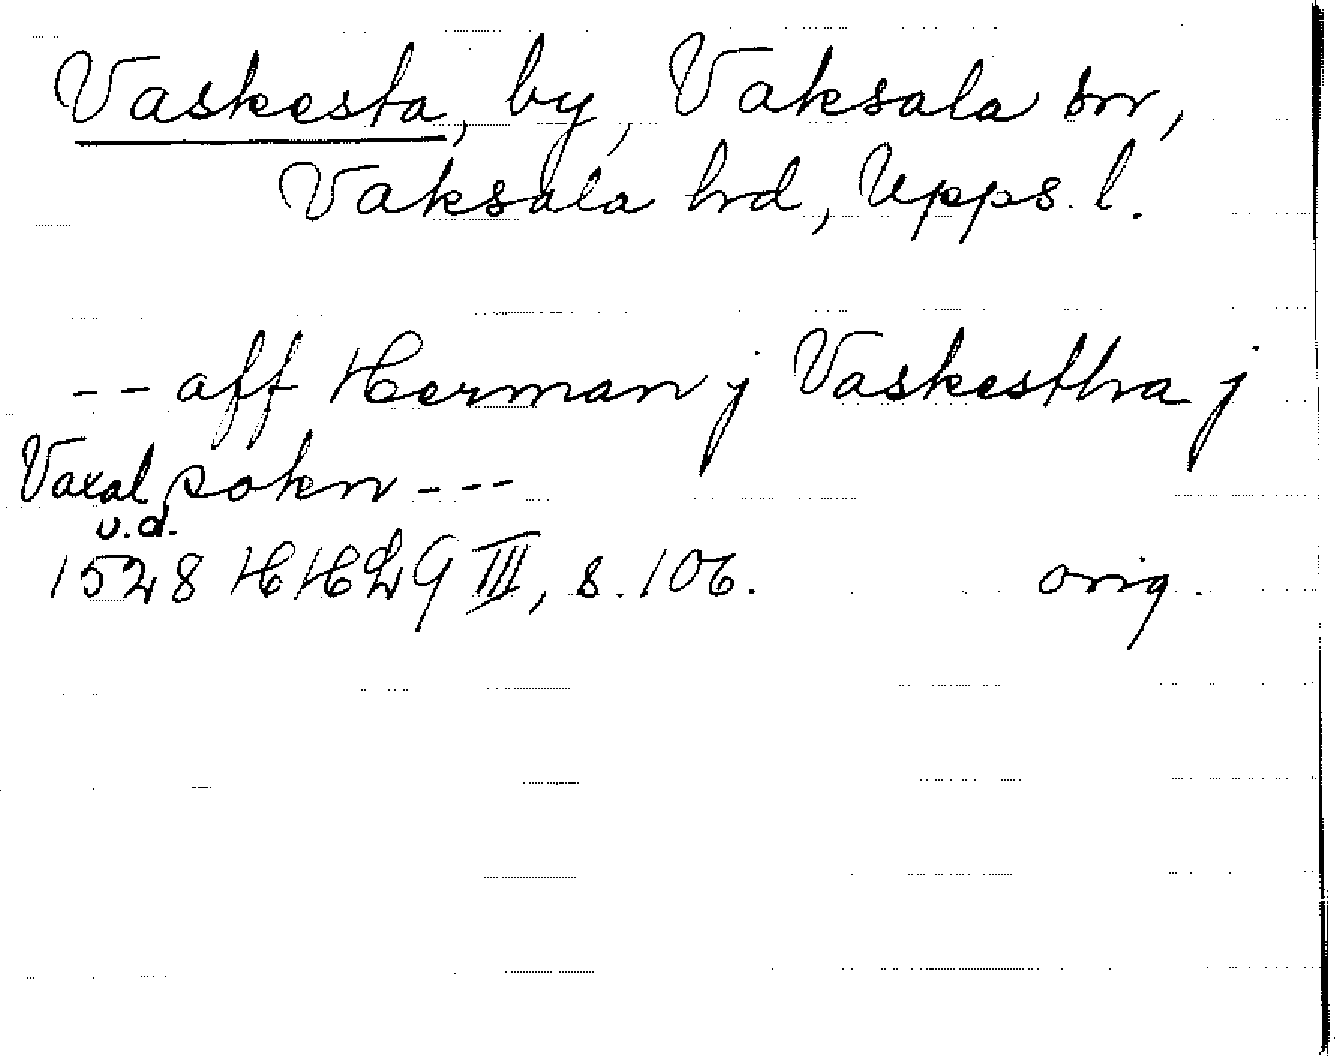 Vaskesta, by, Vaksala sn,
Vaksala hrd, Upps. l.
-- aff Herman j Vaskestha j
Vaxal sokn ---
u.d.
1528 HHLQ III, s. 106. orig.